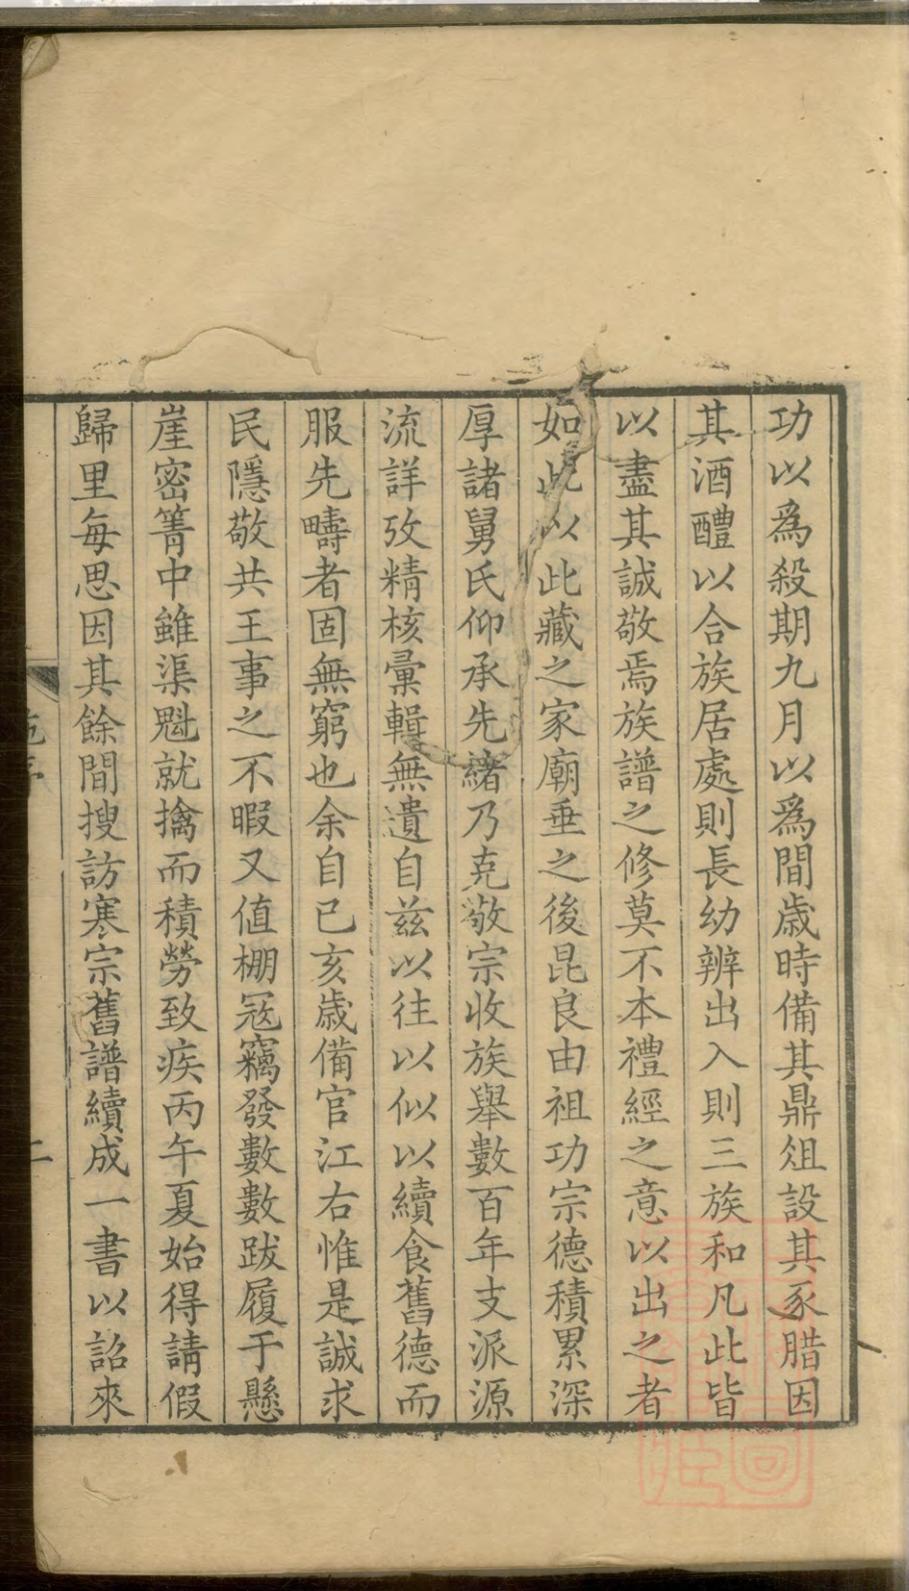 功以爲殺期九月以爲間歲時備其鼎俎設其豕腊因
其酒醴以合族居處則長幼辨出入則三族和凡此皆
以盡其誠敬焉族譜之修莫不本禮經之意以出之者
如此以此藏之家廟垂之後昆良由祖功宗德積累深
厚諸舅氏仰承先緒乃克敬宗收族舉數百年支派源
流詳攷精核彙輯無遺自茲以往以似以續食舊德而
服先疇者固無窮也余自已亥歲備官江右惟是誠求
民隱敬共王事之不暇又值棚冦竊發數數跋履于懸
崖密箐中雖渠魁就擒而積勞致疾丙午夏始得請假
歸里每思因其餘間搜訪寒宗舊譜續成一書以詔來
二